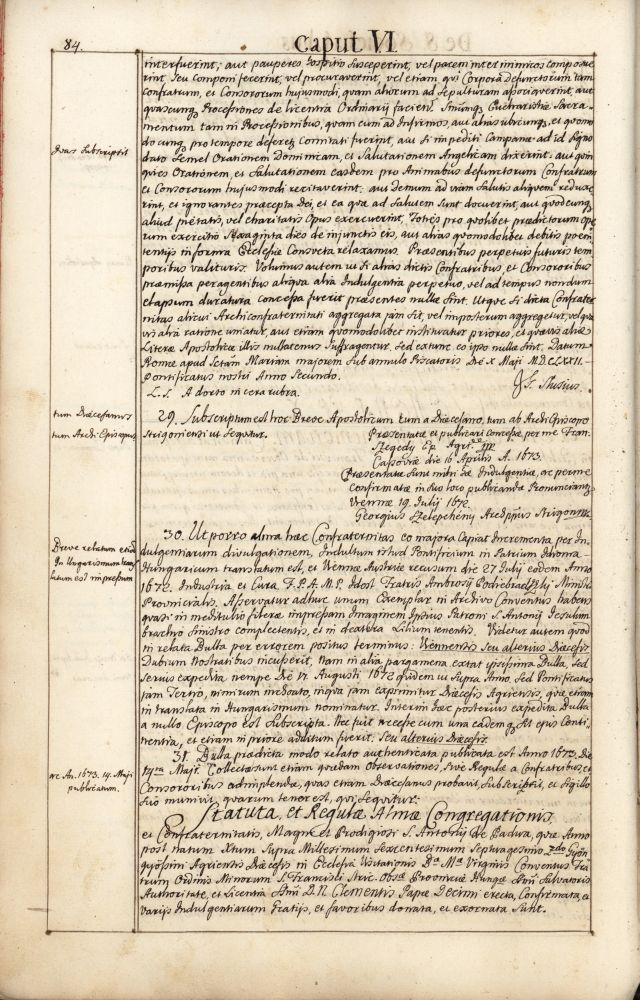 84.
Caput VI
interfuerint; aut pauperes hospitio susceperint, vel pacem inter inimicos composue-
rint, seu componi fecerint, vel procuraverint, vel etiam qui Corpora defunctorum tam
Confratrum, et Consororum hujusmodi, quam aliorum ad Sepulturam associaverint, aut
quascunq Processiones de licentia Ordinarij facien. Smumq Eucharistiæ Sacra-
mentum tam in Processionibus, quam cum ad Infirmos, aut alias ubicunq, et quomo
docunq pro tempore deferet, Comitati fuerint, aut si impediti Campanæ ad id signo
dato semel Orationem Dominicam, et Salutationem Angelicam dixerint, aut quin
Ipsas Subscriptis
quies Orationem, et Salutationem easdem pro Animabus defunctorum Confratrum
et Consororum hujusmodi recitaverint; aut demum ad viam Salutis aliquem reduxe
rint, et ignorantes præcepta Dei, et ea quæ ad Salutem sunt docuerint, aut quodcunq
aliud pietatis, vel charitatis Opus exercuerint, Toties pro quolibet prædictorum ope
rum exercitio Sexaginta dies de injunctis eis, aut alias quomodolibet debitis poeni
tentijs in forma Ecclesiæ Consueta relaxamus. Præsentibus perpetuis futuris tem
poribus valituris. Volumus autem ut si alias dictis Confratribus, et Consororibus
præmissa peragentibus aliqua alia Indulgentia perpetuo, vel ad tempus nondum
elapsum duratura concessa fuerit præsentes nullæ sint. Utque si dicta Confrater
nitas alicui Archiconfraternitati aggregata jam sit, vel imposterum aggregetur, vel qua
vis alia ratione uniatur, aut etiam quomodolibet instituatur priores, et quævis aliæ
Literæ Apostolicæ illis nullatenus suffragentur, sed extunc eo ipso nullæ sint. Datum
Romæ apud Sctam Mariam majorem sub annulo Piscatoris Die X Maji M.D.C.LXXII.
Pontificatus nostri Anno Secundo.
J. S. Slusius.
L. S. A dorto in cera rubra.
tum Diæcesanus
tum Archi Episcopus
29. Subscriptum est hoc Breve Apostolicum tum a Diæcesano, tum ab Archi Episcopo
Strigoniensi ut sequitur.
Præsentatæ et publicari Concessæ per me Fran.
Szegedy Ep. Agri.
Cassoviæ die 16 Aprilis A. 1673.
Præsentatæ sunt mihi hæ Indulgentiæ, ac per me
Confirmatæ in suis locis publicandæ Pronunciantr
Viennæ 19. Julij 1672.
Georgius Szelepcheny Areppus Strigon
30. Ut porro alma hæc Confraternitas eo majora Capiat Incrementa per In
Breve relatum etiam
In Ungarismum trans
latum est impressum
dulgentiarum divulgationem, Indultum istud Pontificium in Patrium Idioma
Hungaricum translatum est, et Viennæ Austriæ recusum die 27 Julij eodem Anno
1672. Industria et Cura F. P. A. M. P. Idest Fratris Ambrosij Podiebradszky Ministri
Provincialis. Asservatur adhuc unum Exemplar in Archivo Conventus habens
quasi in meditulio literæ impressam Imaginem Ipsius Patroni S. Antonij Jesulum
brachio sinistro complectentis, et in dextera Lilium tenentis. Videtur autem quod
in relata Bulla per errorem positus terminus: Viennensis seu alterius Diæcesis
Dubium Nostratibus incusserit, nam in alia pargamena extat ipsissima Bulla, sed
serius expedita, nempe Die 17 Augusti 1672 quidem ut supra Anno, sed Pontificatus
jam Tertio, nimirum inchoato, in qua jam exprimitur Diæcesis Agriensis, quæ etiam
in translata in Hungarismum nominatur. Interim hæc posterius expedita Bulla
a nullo Episcopo est Subscripta. Nec fuit necesse cum una eademq sit ejus Conti
nentia, et etiam in priore additum fuerit, seu alterius Diæcesis.
31. Bulla prædicta modo relato authenticata publicata est Anno 1673. Die
ac An. 1673. 14. Maji
publicatum.
14ta Maji. Collectæ sunt etiam quædam observationes, sive Regulæ a Confratribus, et
Consororibus adimplendæ, quas etiam Diæcesanus probavit, Subscripsit, et Sigillo
suo munivit, quarum tenor est, qui sequitur:
Statuta, et Regulæ Almæ Congregationis,
et Confraternitatis, Magni et Prodigiosi S. Antonij de Padua, quæ Anno
post natum Xtum supra Millesimum Sexcentesimum Septuagesimo 2do Gyön
gyössini Agriensis Diæcesis in Ecclesia Visitationis Bæ Mæ Virginis Conventus Fra
trum Ordinis Minorum S. Francisci Stric. Obsæ Provinciæ Hungæ Ssmi Salvatoris
Authoritate, et Licentia Ssmi D. N. Clementis Papæ Decimi erecta, Confirmata, et
varijs Indulgentiarum Gratijs, et favoribus donata, et exornata sunt.